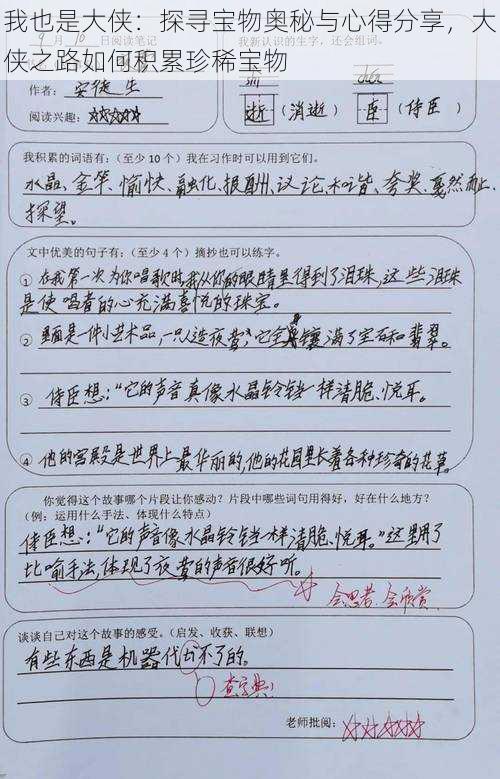 我也是大侠：探寻宝物奥秘与心得分享，大
侠之路如何积累珍稀宝物
作者：安徒生
阅读兴趣：☆☆☆☆☆
逝（消逝） 臣（侍臣）
我积累的词语有：（至少 10 个）我在习作时可以用到它们。
水晶、金笨、愉快、融化、报酬、议论、和谐、夸奖、戛然而止、
探望。
文中优美的句子有：（至少 4 个）摘抄也可以练字。
① 在我第一次为你唱歌时，我从你的眼睛里得到了泪珠，这些泪珠
是使唱者的心充满喜悦的珠宝。
② 里面是一件小艺术品，一只人造夜莺，它全身镶满了宝石和翡翠。
③ 侍臣想：“它的声音真像水晶铃铛一样清脆、悦耳。
④ 他的宫殿是世界上最华丽的，他的花园里长着各种珍奇的花草。
你觉得这个故事哪个片段让你感动？片段中哪些词句用得好，好在什么地方？
（例：运用什么手法、体现什么特点）
侍臣想：“它的声音像水晶铃铛一样清脆、悦耳。”这里用了
比喻手法，体现了夜莺的声音很好听。
会思考，会欣赏。
谈谈自己对这个故事的感受。（启发、收获、联想）
有些东西是机器代不了的。
查字典！
老师批阅：☆☆☆☆☆